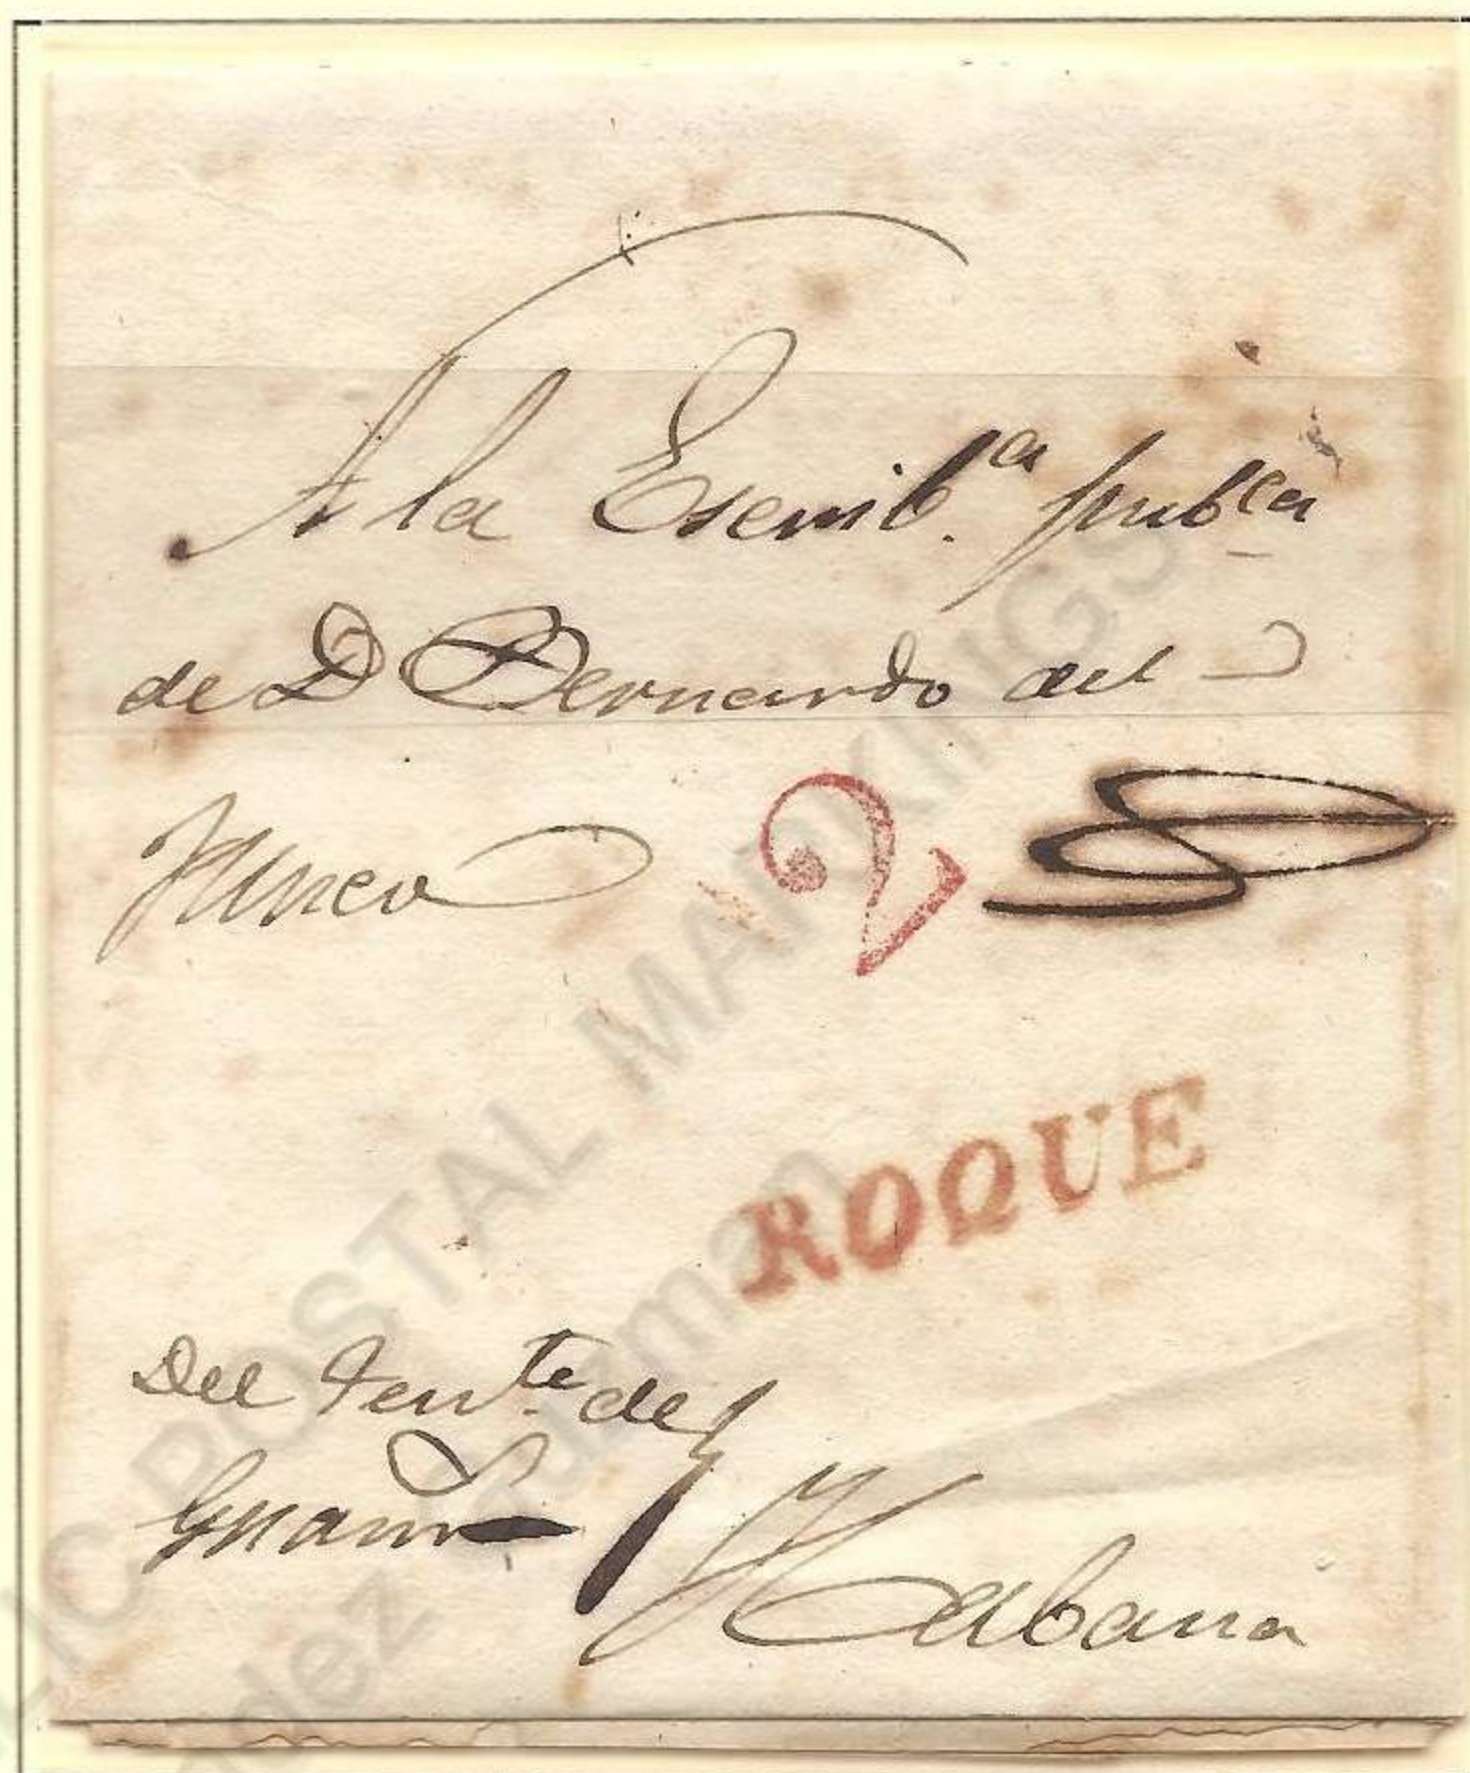 A la Escrib.ª pubca
de D Bernardo del
Junco
2
ROQUE
Del Tente. de
Habana
POSTAL MARKINGS